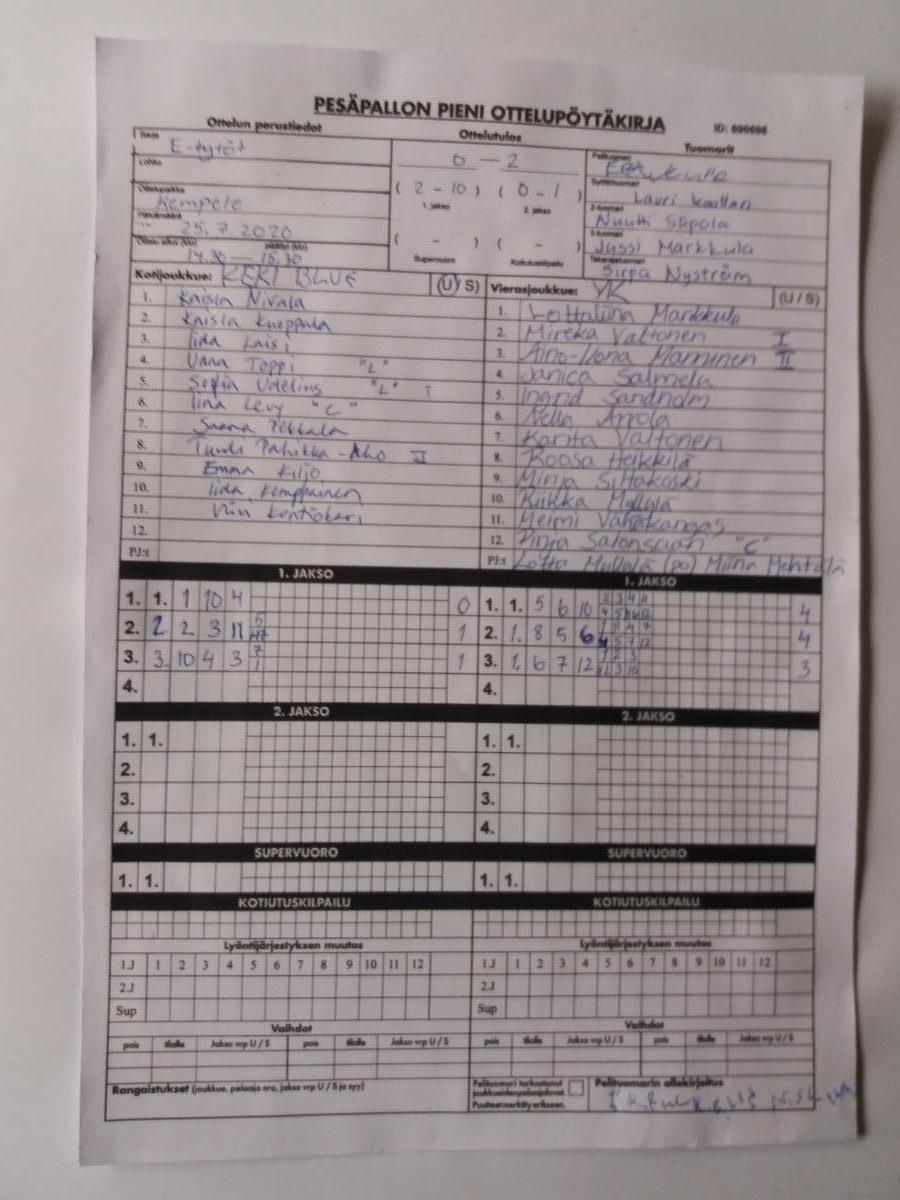 PESÄPALLON PIENI OTTELUPÖYTÄKIRJA
ID: 690698
Ottelun perustiedot
Ottelutulos
Tuomarit
Sarja
E-tytöt
Lohko
Ottelupaikka
Kempele
Päivämäärä
25.7.2020
Ottelu alkoi (klo) päättyi (klo)
14.30 — 15.30
0 — 2
( 2 - 10 ) ( 0 - 1 )
1. jakso 2. jakso
( - ) ( - )
Supervuoro Kotiutuskilpailu
Pelituomari
Syöttötuomari
Lauri
2-tuomari
Nuutti Siipola
3-tuomari
Jussi Markkula
Takarajatuomari
Sirpa Nyström
Kotijoukkue: KEKI BLUE (U/S)
1. Kaisla Nivala
2. Kaisla Knoppala
3. Iida Laisi
4. Vana Toppi "L"
5. Sofia Udelius "L" I
6. Iina Levy "C"
7. Saana Pekkala
8. Tuuli Pahikka-Aho II
9. Emma Kiljo
10. Iida Kemppainen
11. Kontiokari
12.
PJ:t
Vierasjoukkue: YK (U/S)
1. Lottaliina Markkula
2. Mireka Valtonen I
3. Aino-Ilona Manninen II
4. Janica Salmela
5. Ingrid Sandholm
6. Nella Arrola
7. Karita Valtonen
8. Roosa Heikkilä
9. Minja Siltakoski
10. Riikka Myllylä
11. Heimi Vähäkangas
12. Pinja Salonsaari "C"
PJ:t Lotta Myllylä (po) Miina Mehtälä
1. JAKSO
1. 1. 1 10 4 0
2. 2 2 3 11 1
3. 3. 10 4 3 7 1 1
4.
1. JAKSO
1. 1. 5 6 10 4
2. 1. 8 5 6 4
3. 1. 6 7 12 3
4.
2. JAKSO
1. 1.
2.
3.
4.
2. JAKSO
1. 1.
2.
3.
4.
SUPERVUORO
1. 1.
SUPERVUORO
1. 1.
KOTIUTUSKILPAILU
KOTIUTUSKILPAILU
Lyöntijärjestyksen muutos
1J 1 2 3 4 5 6 7 8 9 10 11 12
2J
Sup
Lyöntijärjestyksen muutos
1J 1 2 3 4 5 6 7 8 9 10 11 12
2J
Sup
Vaihdot
pois tilalle Jakso vrp U / S pois tilalle Jakso vrp U / S
Vaihdot
pois tilalle Jakso vrp U / S pois tilalle Jakso vrp U / S
Rangaistukset (joukkue, pelaaja nro, jakso vrp U / S ja syy)
Pelituomari tarkastanut
joukkueiden pelaajaluvat.
Puutteet merkitty erikseen.
Pelituomarin allekirjoitus